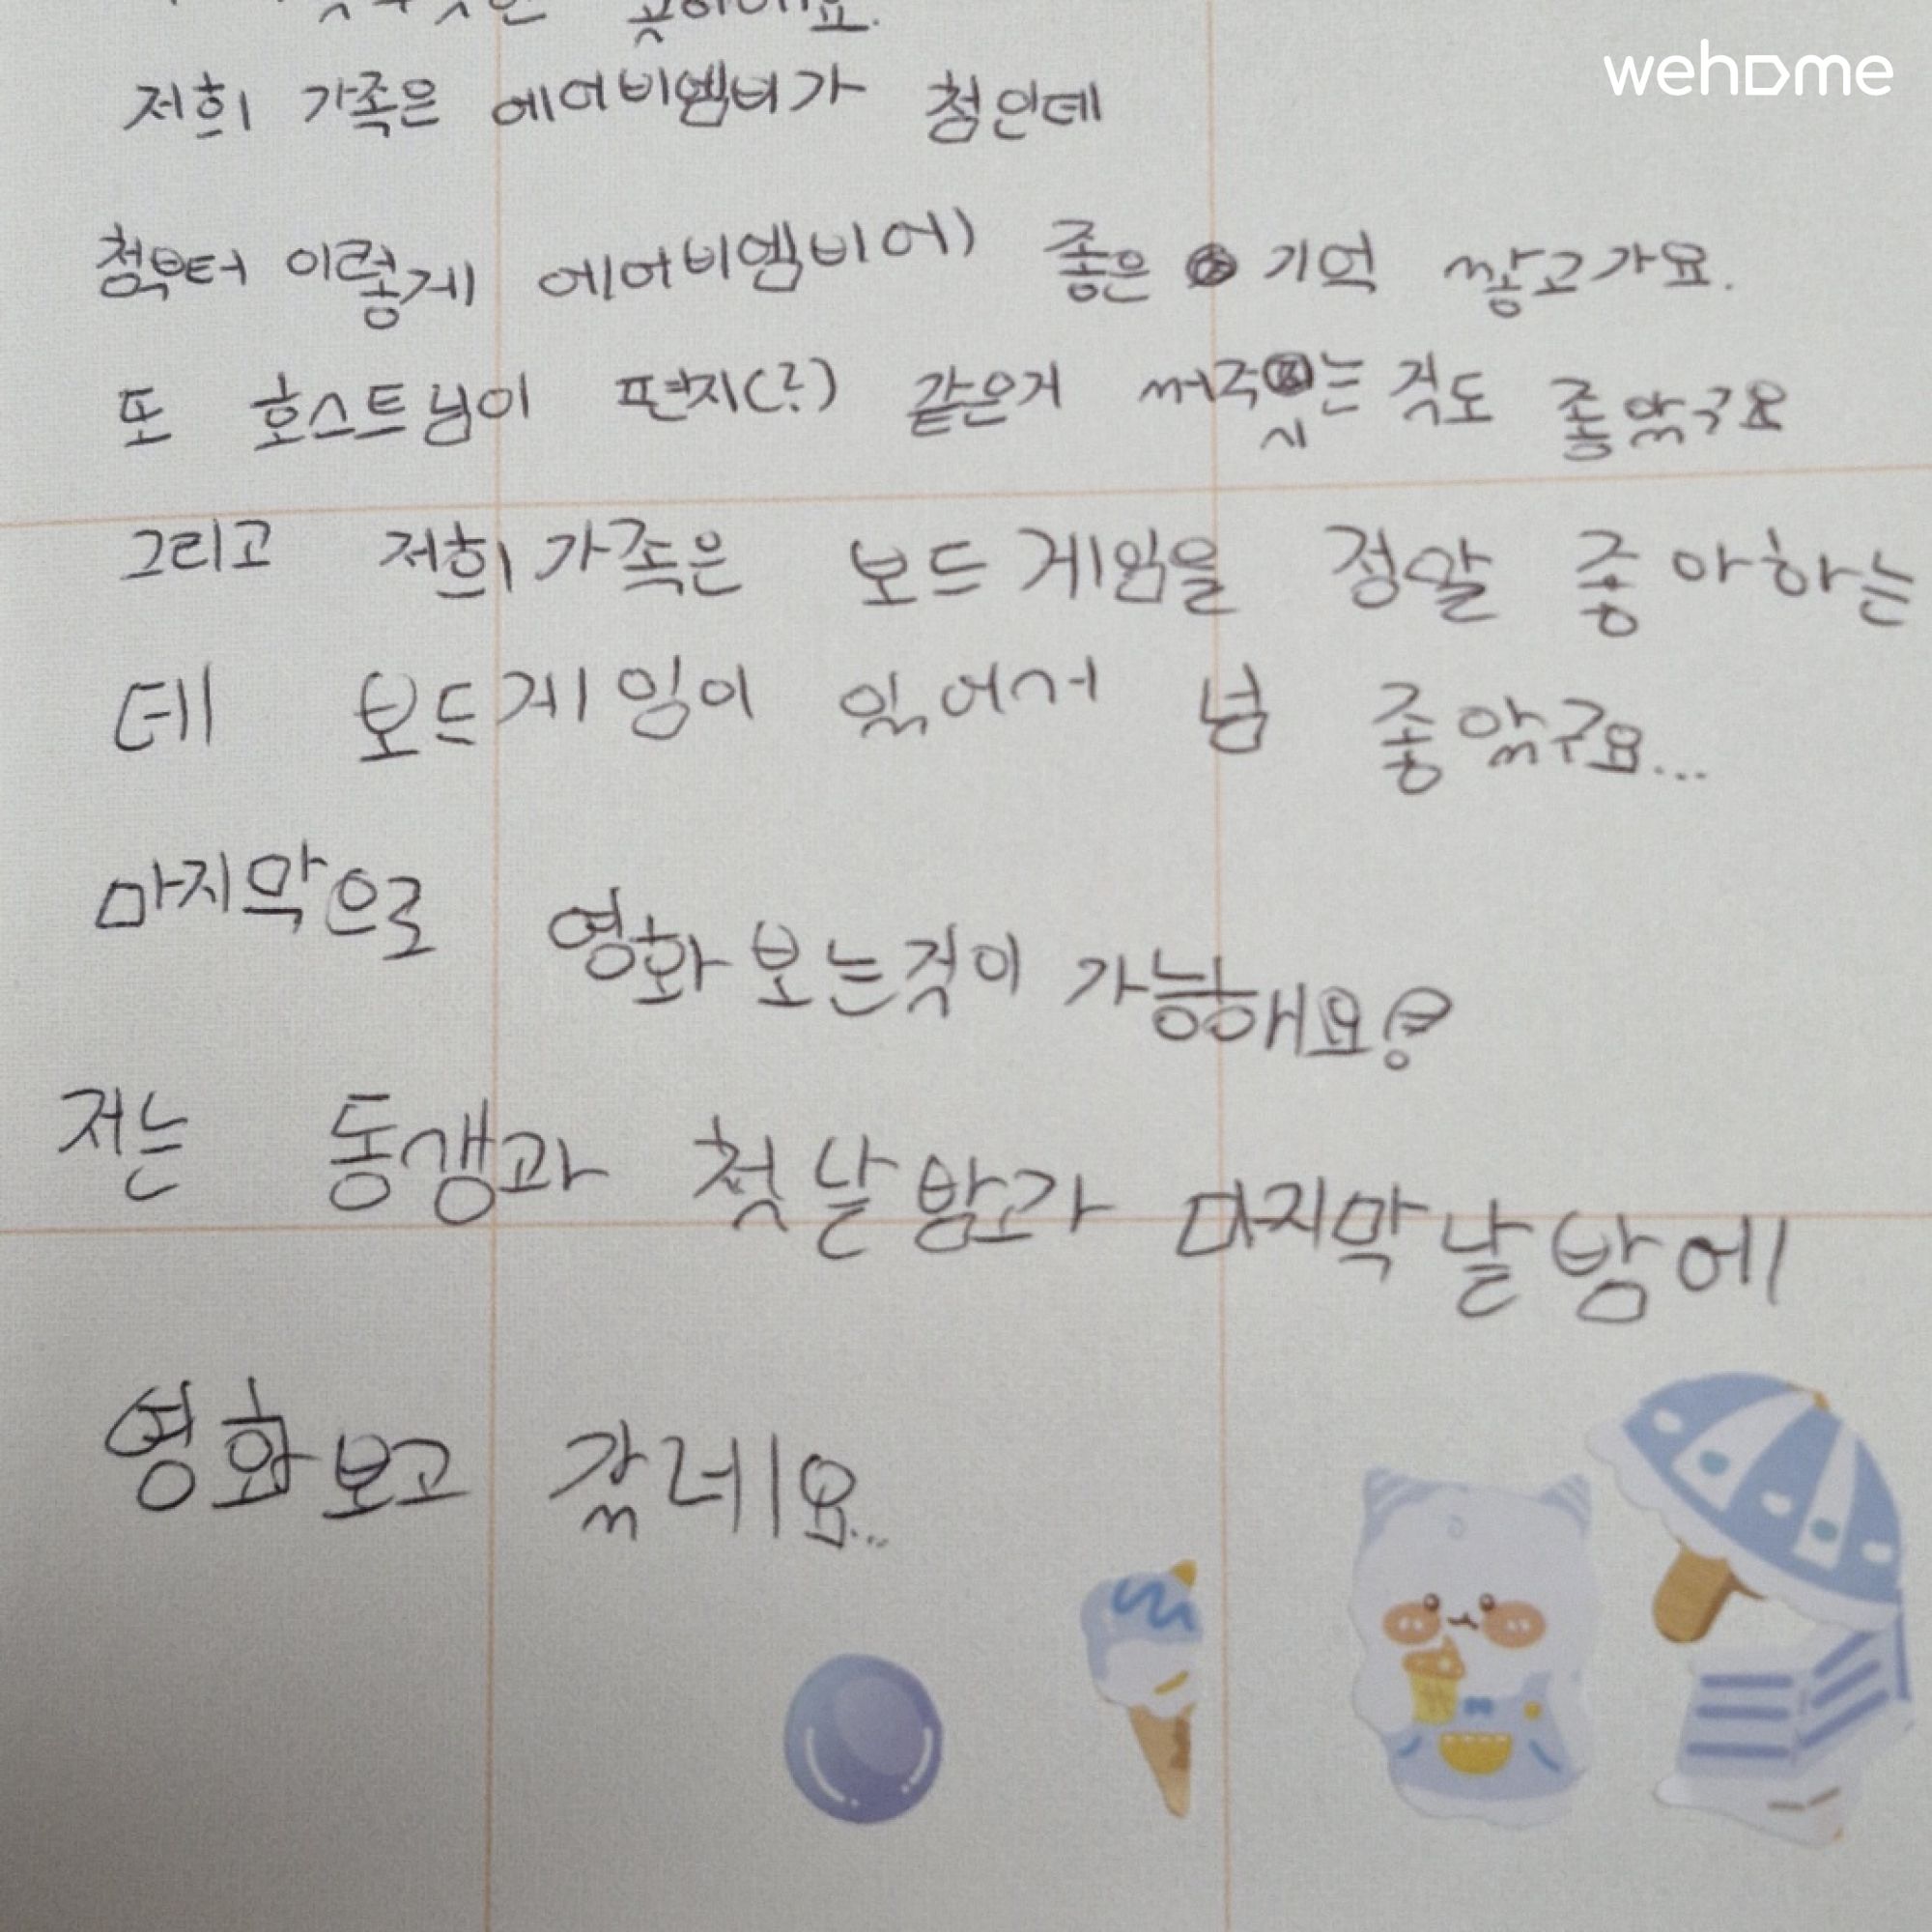 wehome
저희 가족은 에어비엠비가 첨인데
첨부터 이렇게 에어비엠비에) 좋은 기억 쌓고가요.
또 호스트님이 편지(?) 같은거 써주시는 것도 좋았구요
그리고 저희 가족은 보드게임을 정말 좋아하는
데 보드게임이 있어서 넘 좋았구요...
마지막으로 영화보는것이 가능해요?
저는 동생과 첫날밤과 마지막날밤에
영화보고 갔네요...